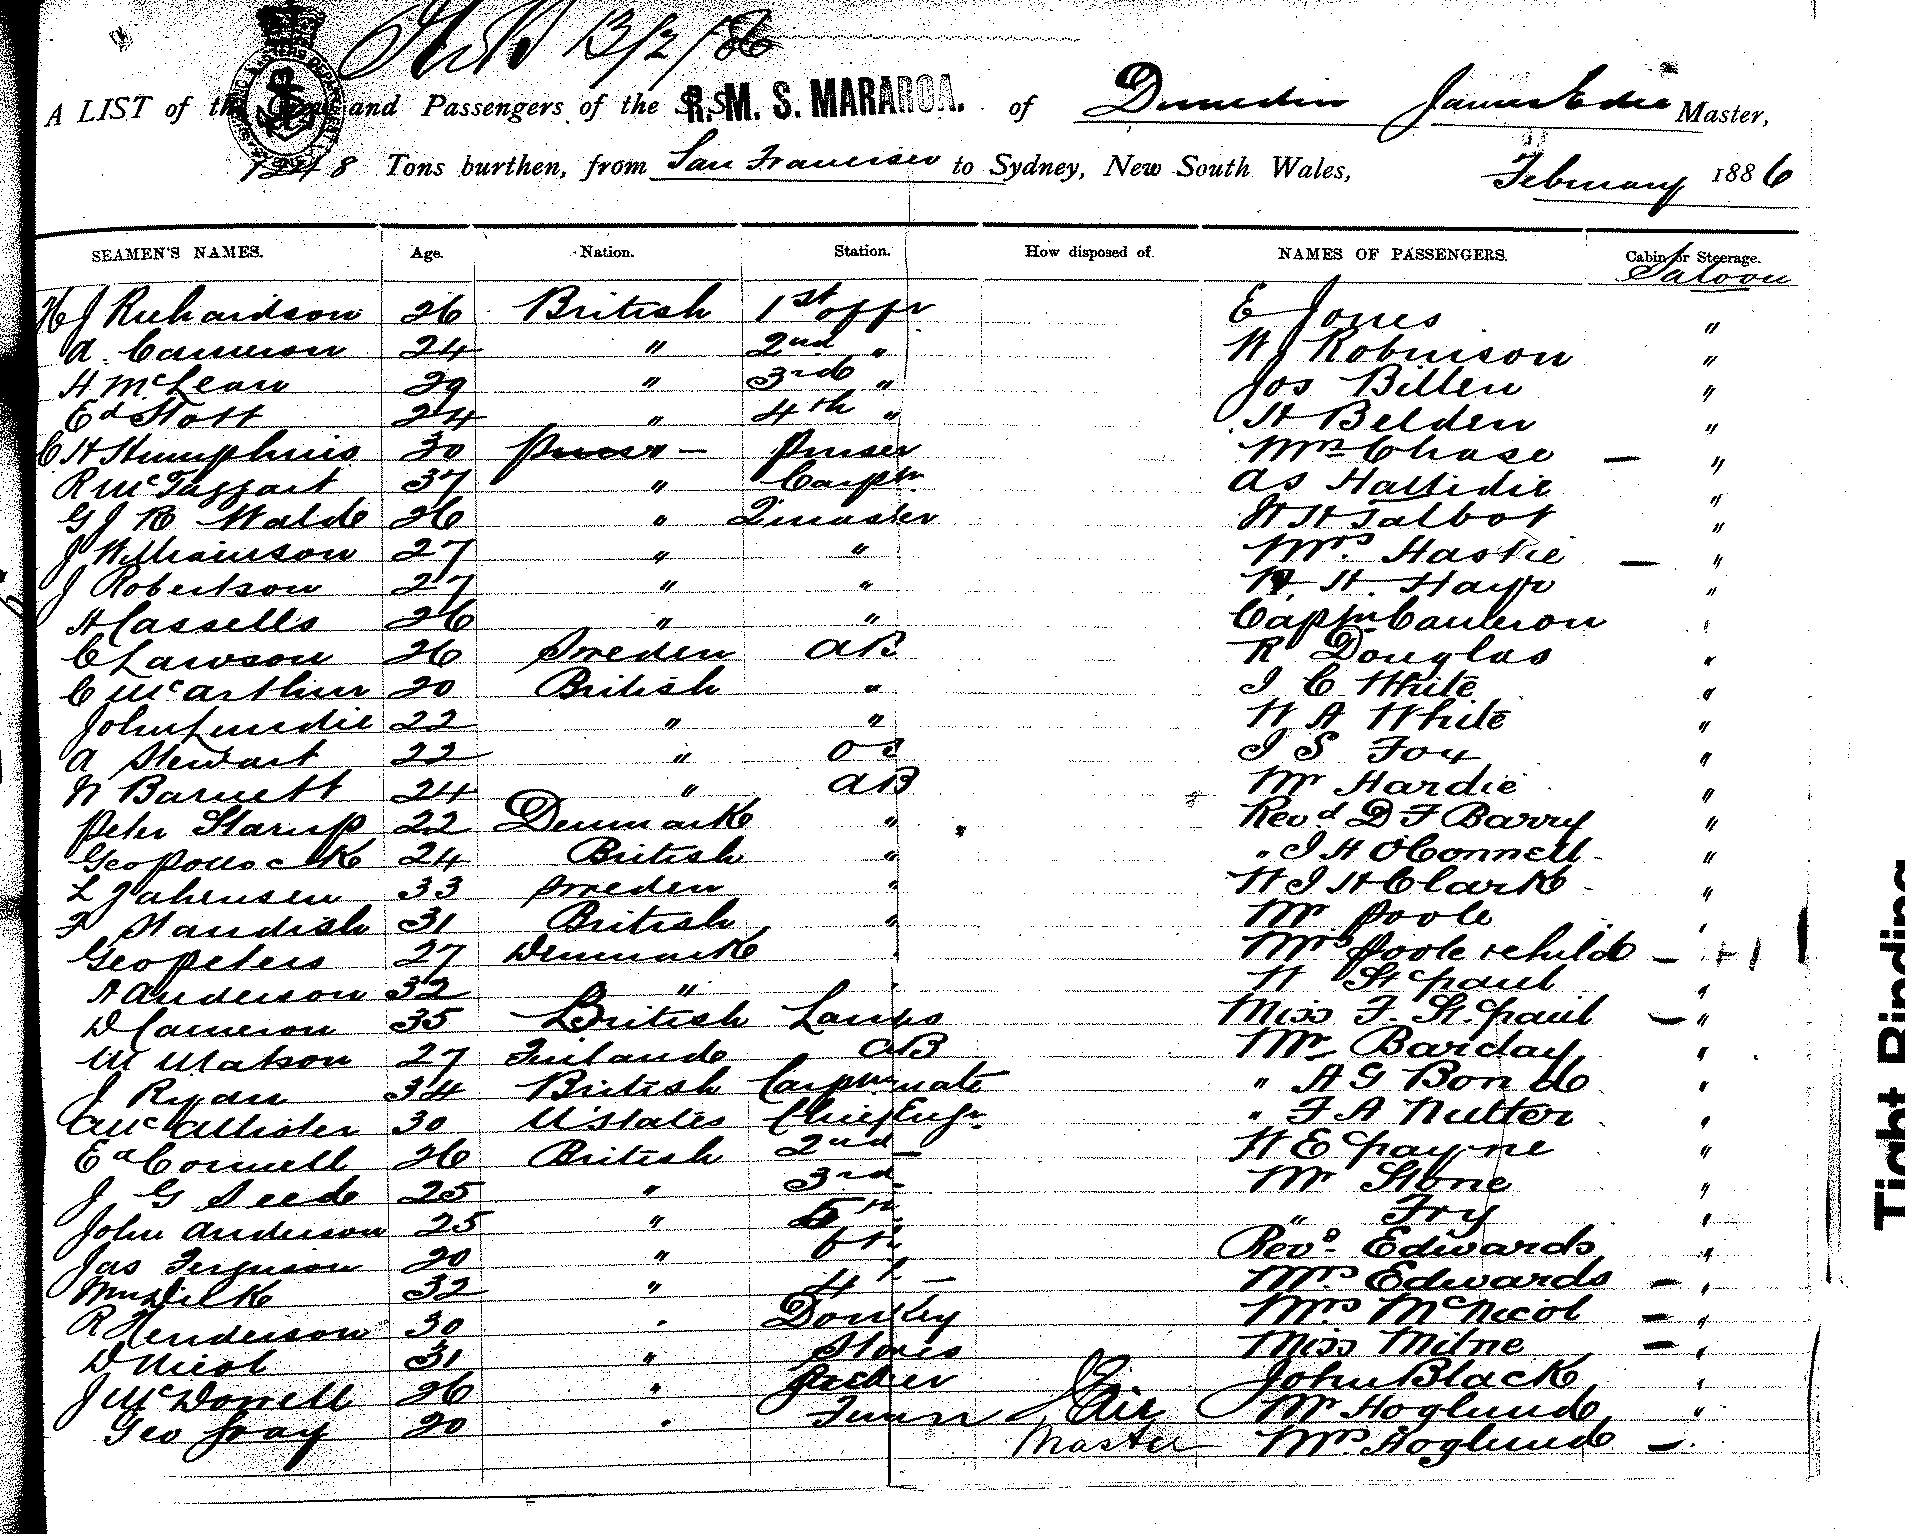 13/2/86
A LIST of the Crew and Passengers of the S.S. R. M. S. MARAROA. of Dunedin James Edie Master,
Tons burthen, from San Francisco to Sydney, New South Wales, February 1886
SEAMEN'S NAMES. Age. Nation. Station. How disposed of. NAMES OF PASSENGERS. Cabin or Steerage.
Saloon
H J Richardson 26 British 1st offr E Jones "
A Cameron 24 " 2nd " W J Robinson "
H McLean 29 " 3rd " Jos Billen "
Ed Stott 24 " 4th " H Belden "
C H Humphries 30 " - Purser Mrs Chase - "
R McTaggart 37 " Carptr As Hallidie "
G J R Walde 26 " Qmaster W H Talbot "
J Williamson 27 " " Mrs Hastie - "
J Robertson 27 " " H. "
A Cassells 26 " " Captn Cameron "
C Lawson 26 Sweden AB R Douglas "
C McArthur 20 British " J C White "
John Lundie 22 " " W A White "
A Stewart 22 " OS J S Fox "
N Barnett 24 " AB Mr Hardie "
Peter Starup 22 Denmark " Revd D F Barry "
Geo Pollock 24 British " " J H O'Connell "
L Jahensen 33 Sweden " W J H Clark "
F Standish 31 British " Mr Poole "
Geo Peters 27 Denmark " Mrs Poole & child - + 1
A Anderson 32 " " W St Paul "
D Cameron 35 British Lamps Miss F. St. Paul - "
M Matson 27 Finland AB Mr Barclay "
J Ryan 34 British Carptrs mate " A G Bond "
A McAllister 30 U States Chief Engr " F A Nutter "
Ed Connell 26 British 2nd W E Payne "
J G Seed 25 " 3rd Mr Stone "
John Anderson 25 " 5th " Fry "
Jas Ferguson 20 " 6th Revd Edwards "
Wm Dilk 32 " 4th - Mrs Edwards - "
R Henderson 30 " Donkey Mrs McNicol - "
D Nicol 31 " Stores Miss Milne - "
J McDowell 26 " John Black "
Geo Gray 20 " Mr Hoglund "
Master Mrs Hoglund - "
Tight Binding